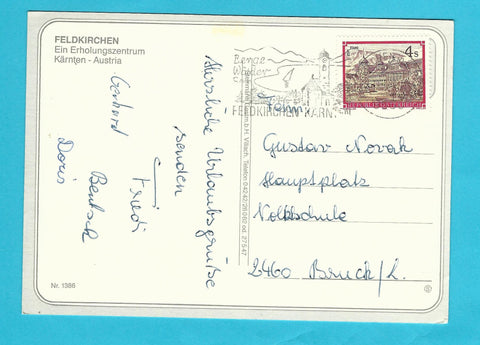 FELDKIRCHEN
Ein Erholungszentrum
Kärnten - Austria
Herzliche Urlaubsgrüße
senden
Friedi
Gerhard Bentsch
Doris
Nr. 1386
Berge
Wälder
FELDKIRCHEN KÄRNTEN
4 S
REPUBLIK ÖSTERREICH
Fam.
Gustav Novak
Hauptplatz
Volksschule
2460 Bruck/L.